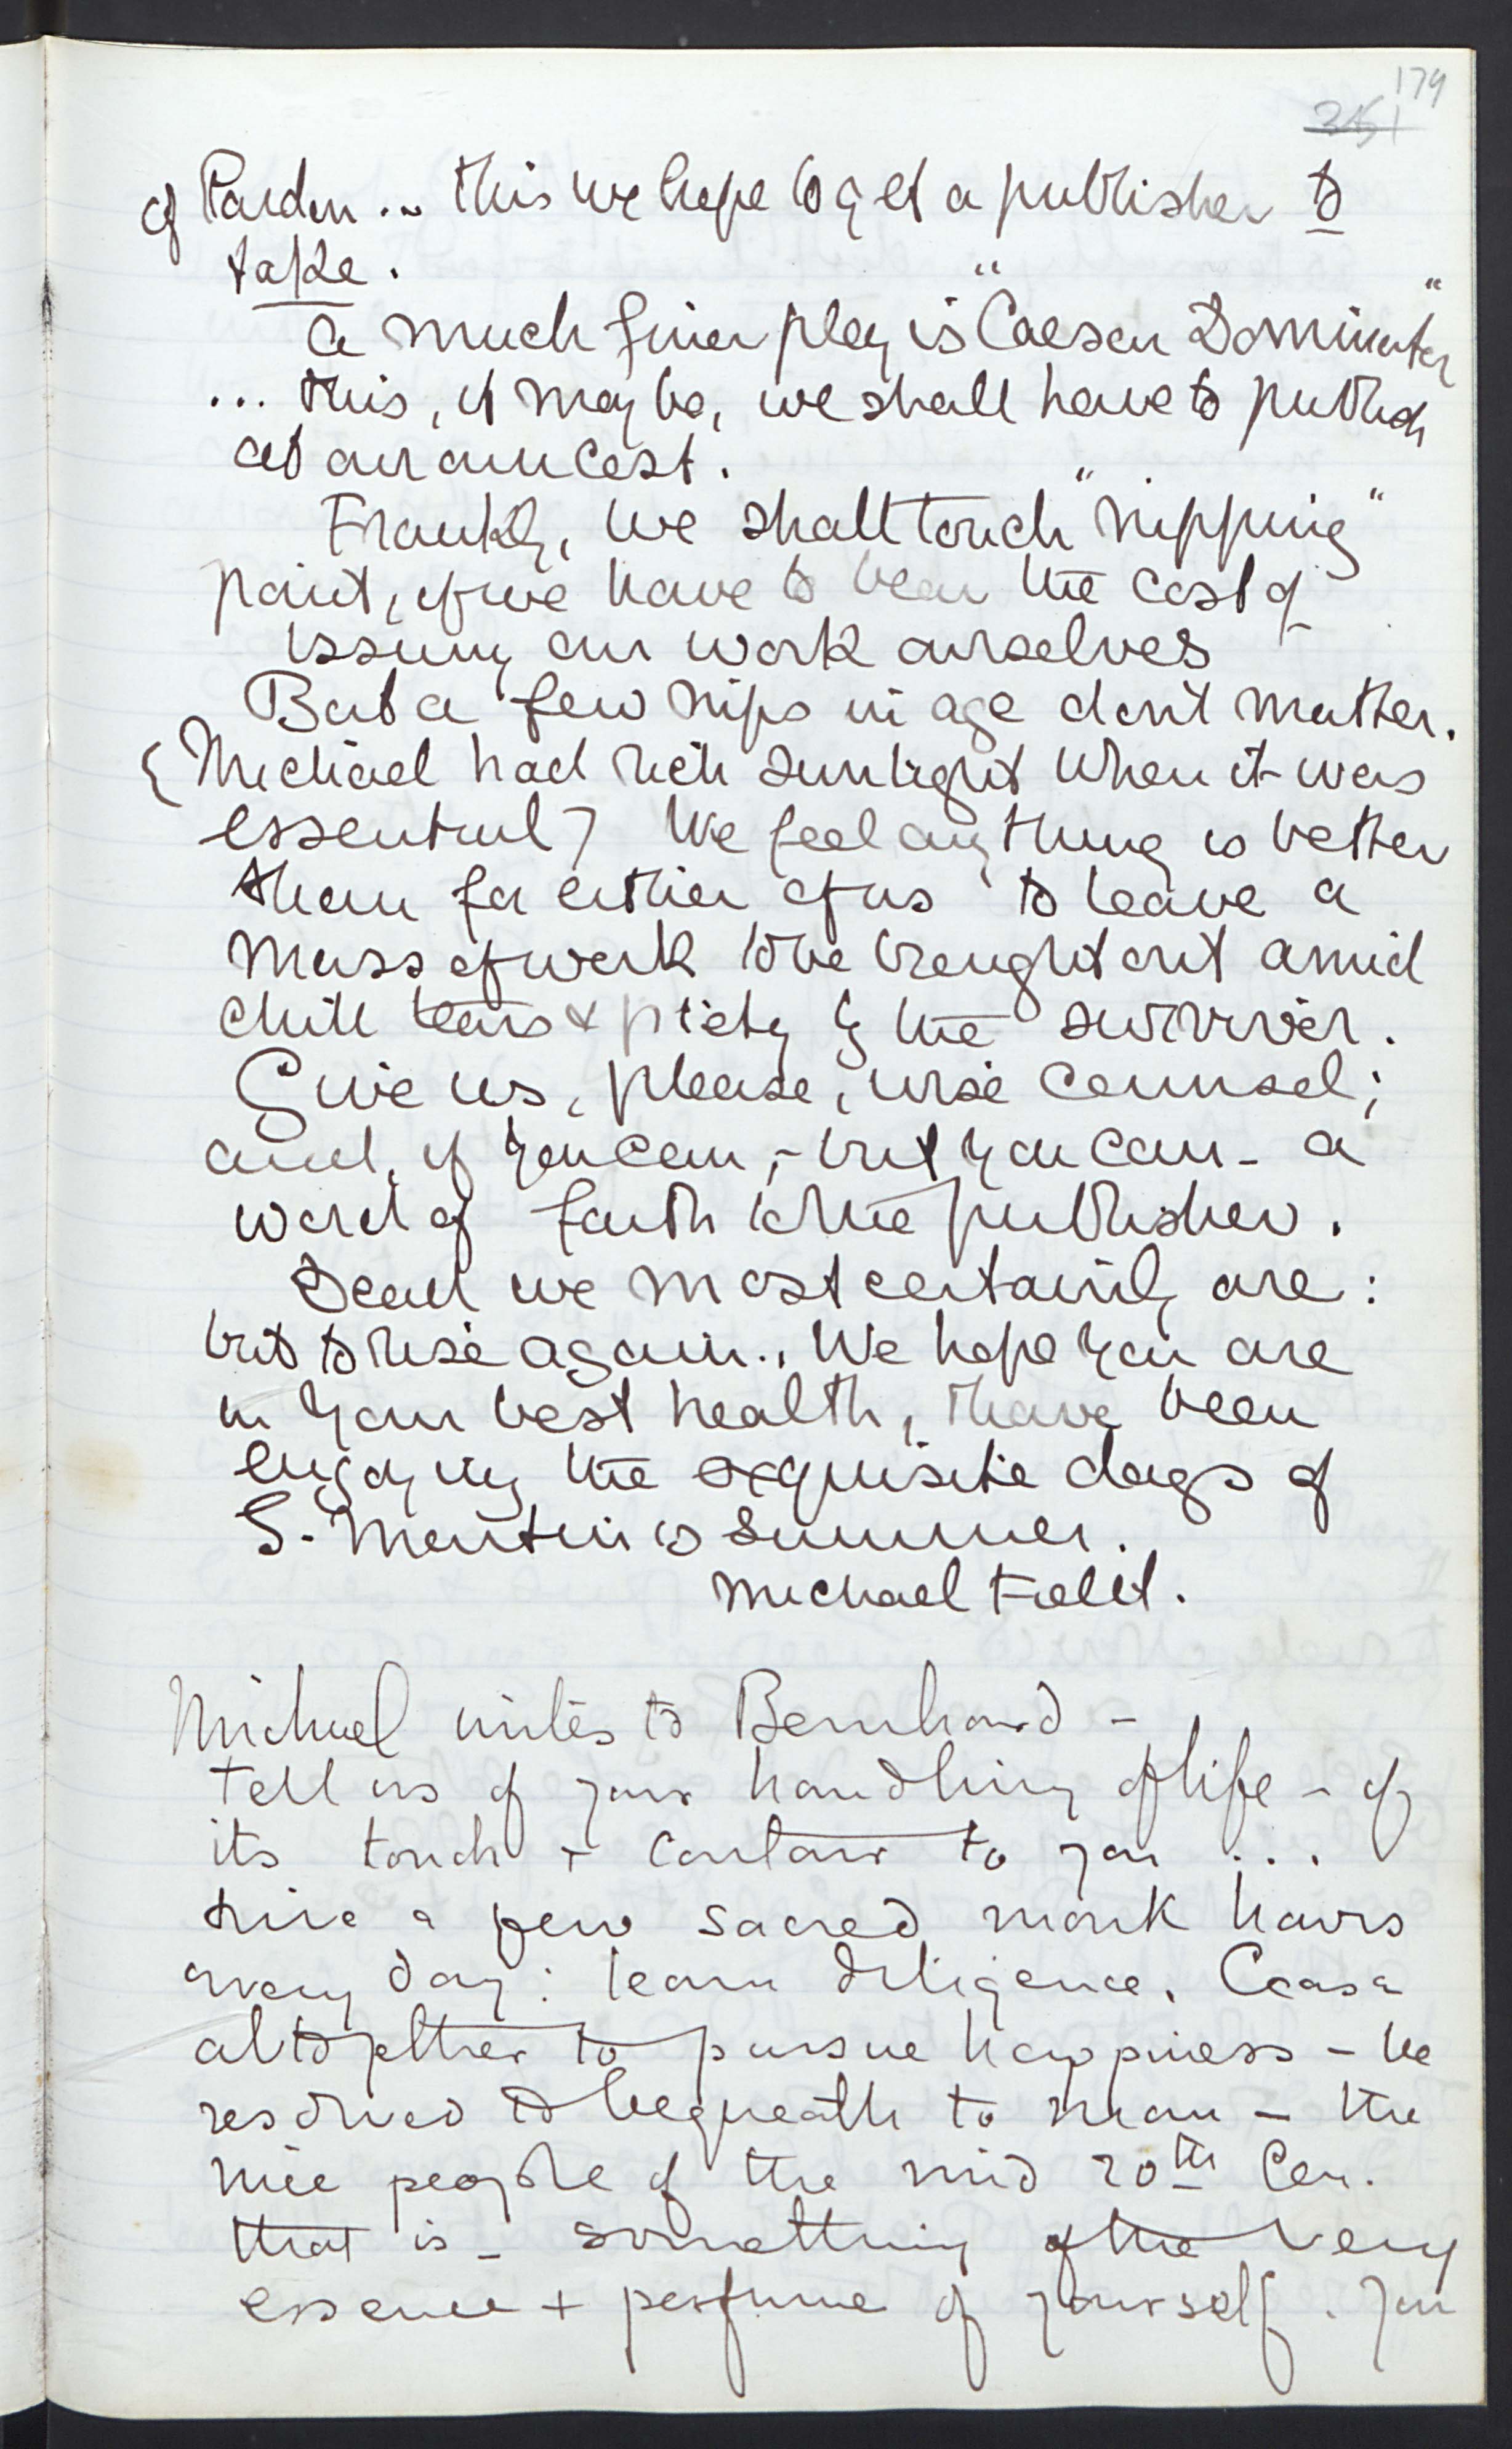 179
351
of Pardon .. this we hope to get a publisher to
take.
A much finer play is "Caesar Dominator"
... this, it may be, we shall have to publish
at our own cost.
Frankly, we shall touch "nipping"
point, if we have to bear the cost of
issuing our work ourselves
But a few nips in age don't matter.
(Michael had rich sunlight when it was
essential) We feel anything is better
than for either of us to leave a
mass of work to be brought out amid
chill tears & piety by the survivor.
Give us, please, wise counsel;
and, if you can, - but you can - a
word of faith to the publisher.
Dead we most certainly are:
but to rise again.. We hope you are
in your best health, & have been
enjoying the exquisite days of
S. Martin's summer.
Michael Field.
Michael writes to Bernhard -
Tell us of your handling of life - of
its touch & contour to you ...
a few sacred work hours
every day: learn diligence. Cease
altogether to pursue happiness - be
resolved to bequeath to man - the
nice people of the mid 20th Cen.
that is - something of the very
essence + perfume of yourself. You